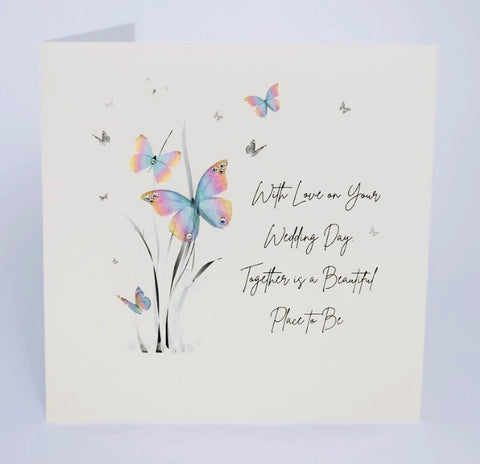 With Love on Your
Wedding Day.
Together is a Beautiful
Place to Be